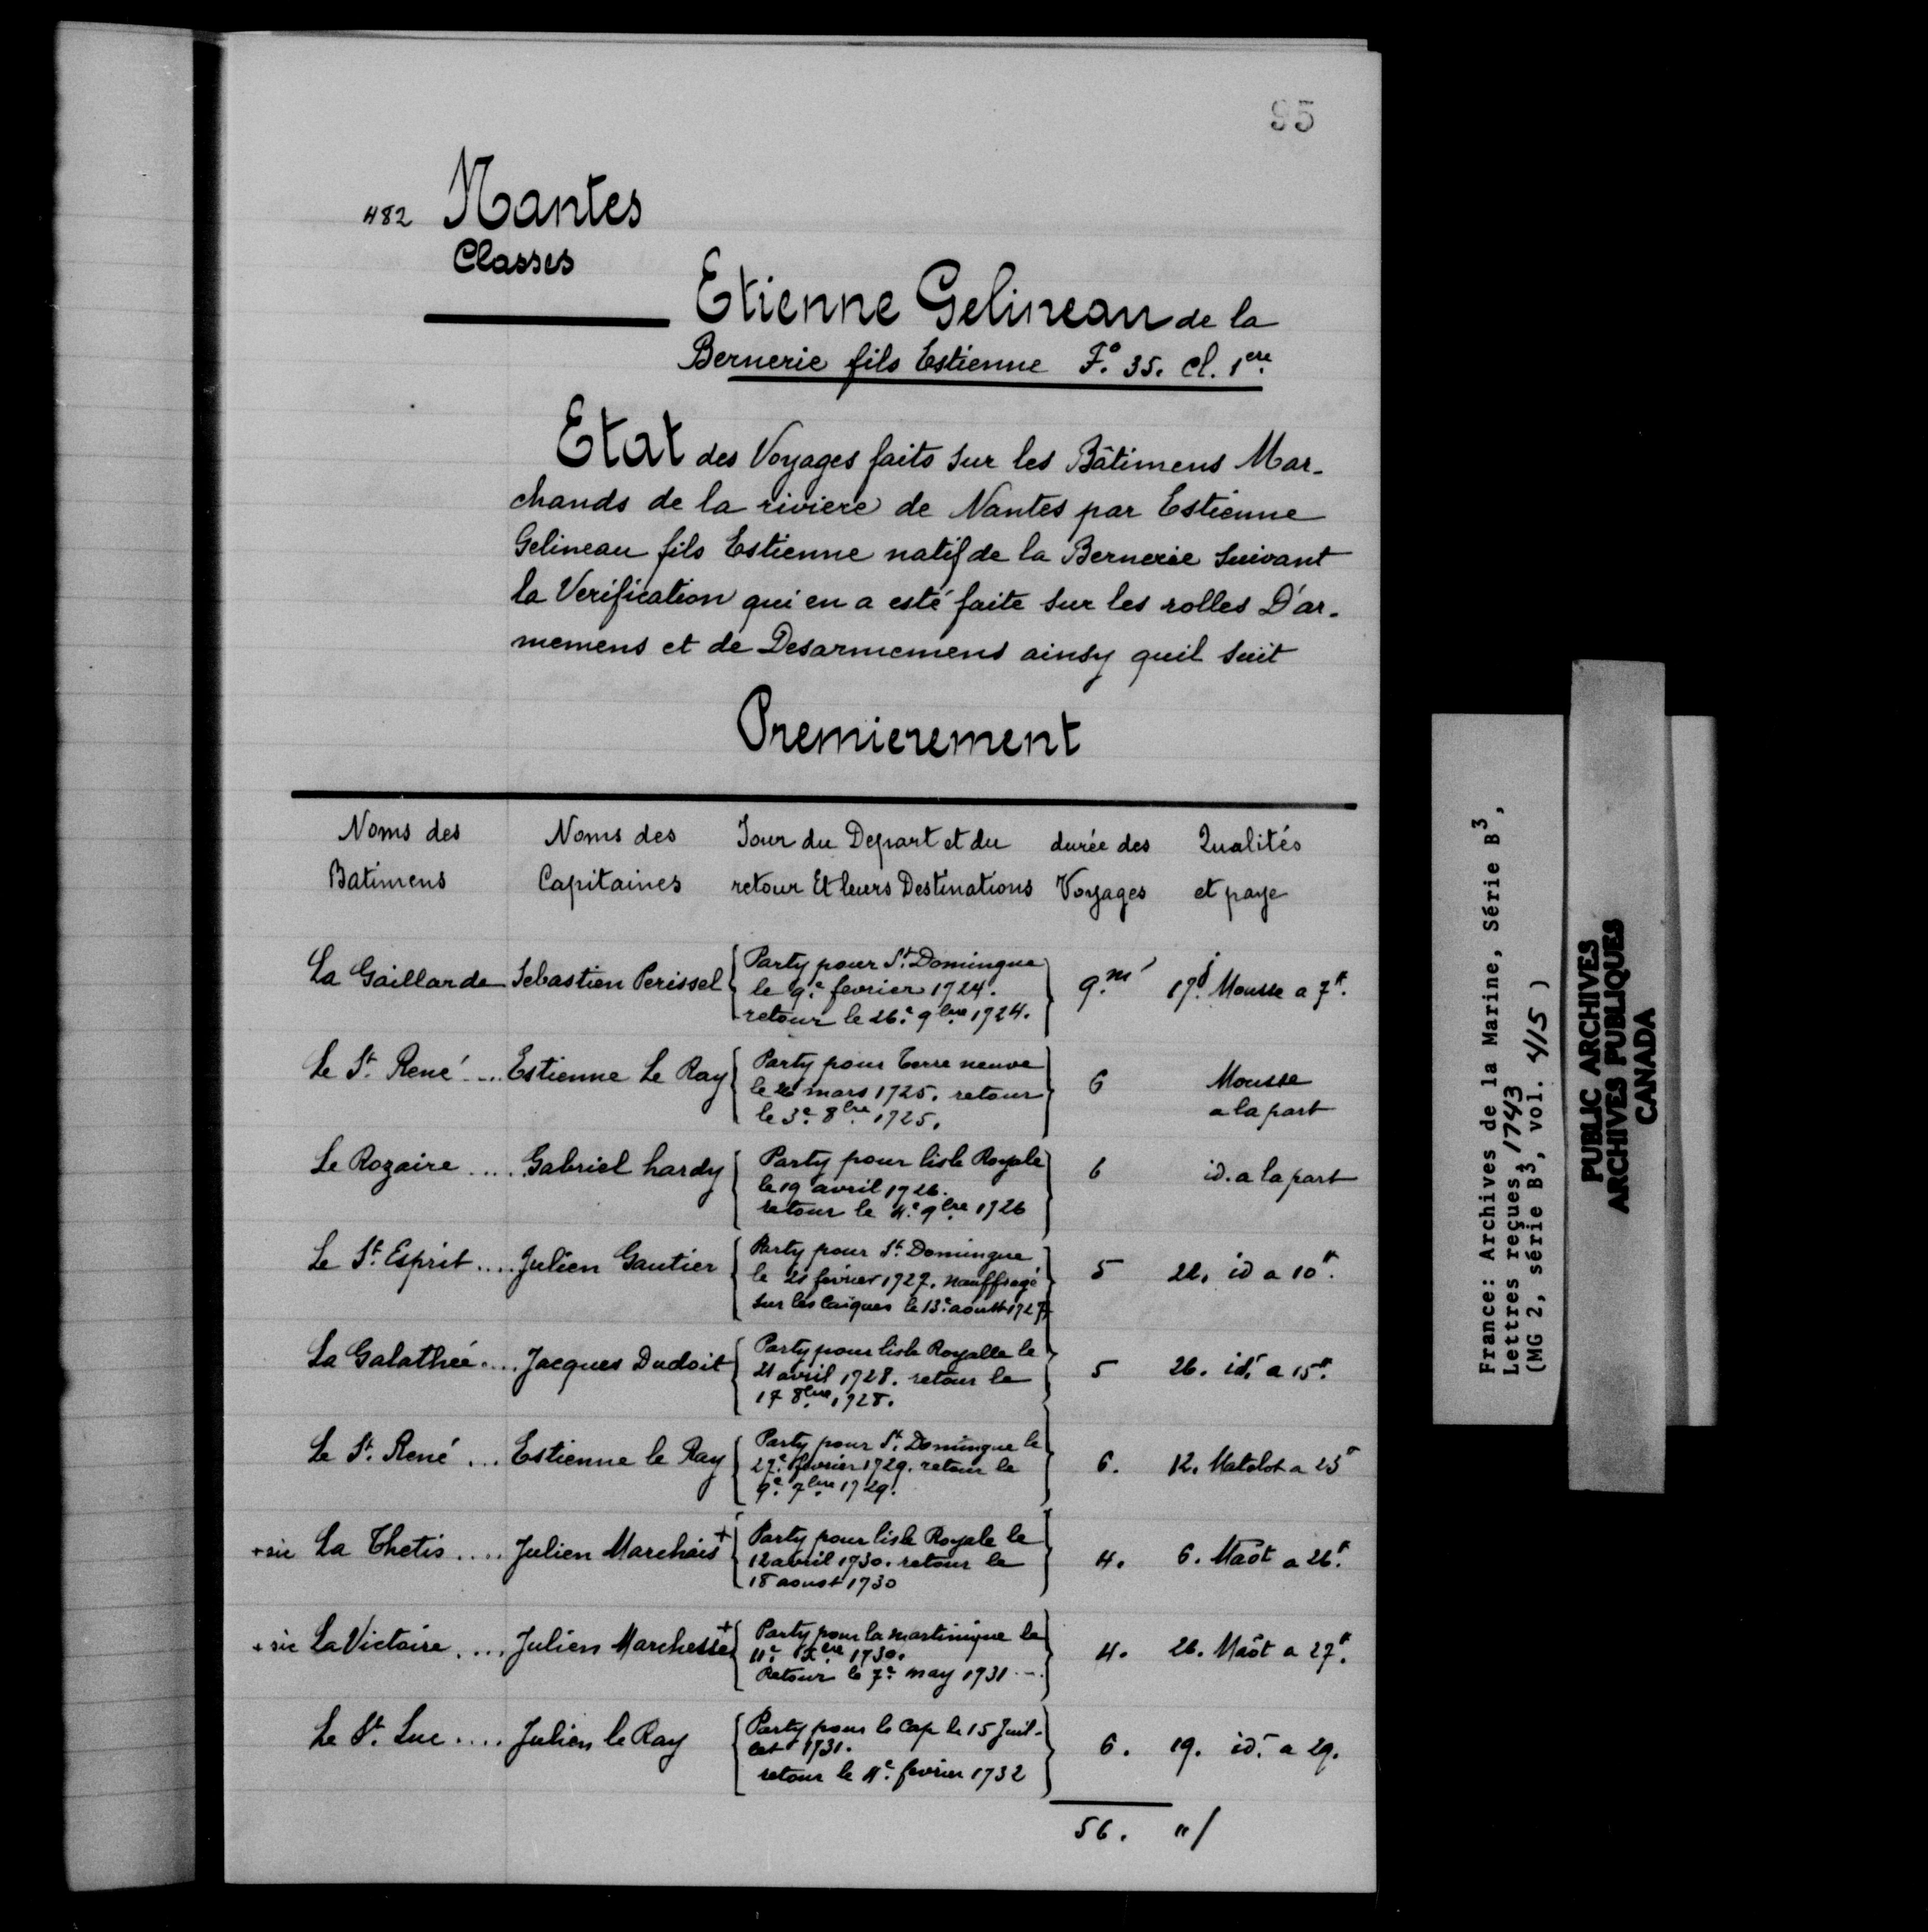 95
482 Nantes
Classes
Etienne Gelineau de la
Bernerie fils Estienne F.º 35. Cl. 1ere.
Etat des Voyages faits sur les Bâtimens Mar-
chands de la riviere de Nantes par Estienne
Gelineau fils Estienne natif de la Bernerie suivant
la Verification qui en a esté faite sur les rolles D'ar-
memens et de Desarmemens ainsy quil suit
Premierement
Noms des Noms des Jour du Depart et du durée des Qualités
Batimens Capitaines retour Et leurs Destinations Voyages et paye
La Gaillarde Sebastien Perissel { Party pour St. Domingue
le 9.e fevrier 1724.
retour le 26.e 9bre 1724. } 9.m 17.j Mousse a 7tt.
Le St. René .... Estienne Le Ray { Party pour Terre neuve
le 26 mars 1725. retour
le 3.e 8bre. 1725. } 6 Mousse
a la part
Le Rozaire .... Gabriel hardy { Party pour lisle Royale
le 19 avril 1726.
retour le 4.e 9bre 1726 } 6 id. a la part
Le St. Esprit .... Julien Gautier { Party pour St. Domingue
le 21 fevrier 1727. nauffragé
sur les Caiques le 13.e aoust 1727 } 5 22. id a 10tt.
La Galathée .... Jacques Dudoit { Party pour lisle Royalle le
21 avril 1728. retour le
17 8bre. 1728. } 5 26. id. a 15tt.
Le St. René ... Estienne le Ray { Party pour St. Domingue le
27.e fevrier 1729. retour le
9.e 7bre 1729. } 6. 12. Matelot a 23tt
+ sic La Thetis .... Julien Marchais + { Party pour lisle Royale le
12 avril 1730. retour le
18 aoust 1730 } 4. 6. Maõt a 26tt.
+ sic La Victoire .... Julien Marchesse + { Party pour la martinique le
11.e Xbre 1730.
Retour le 7.e may 1731 -. } 4. 26. Maõt a 27tt.
Le St. Luc .... Julien le Ray { Party pour le Cap le 15 Juil-
let 1731.
retour le 4.e fevrier 1732 } 6. 19. id. a 29.
56. "/
France: Archives de la Marine, Série B3,
Lettres reçues, 1743
(MG 2, série B3, vol. 415 )
PUBLIC ARCHIVES
ARCHIVES PUBLIQUES
CANADA